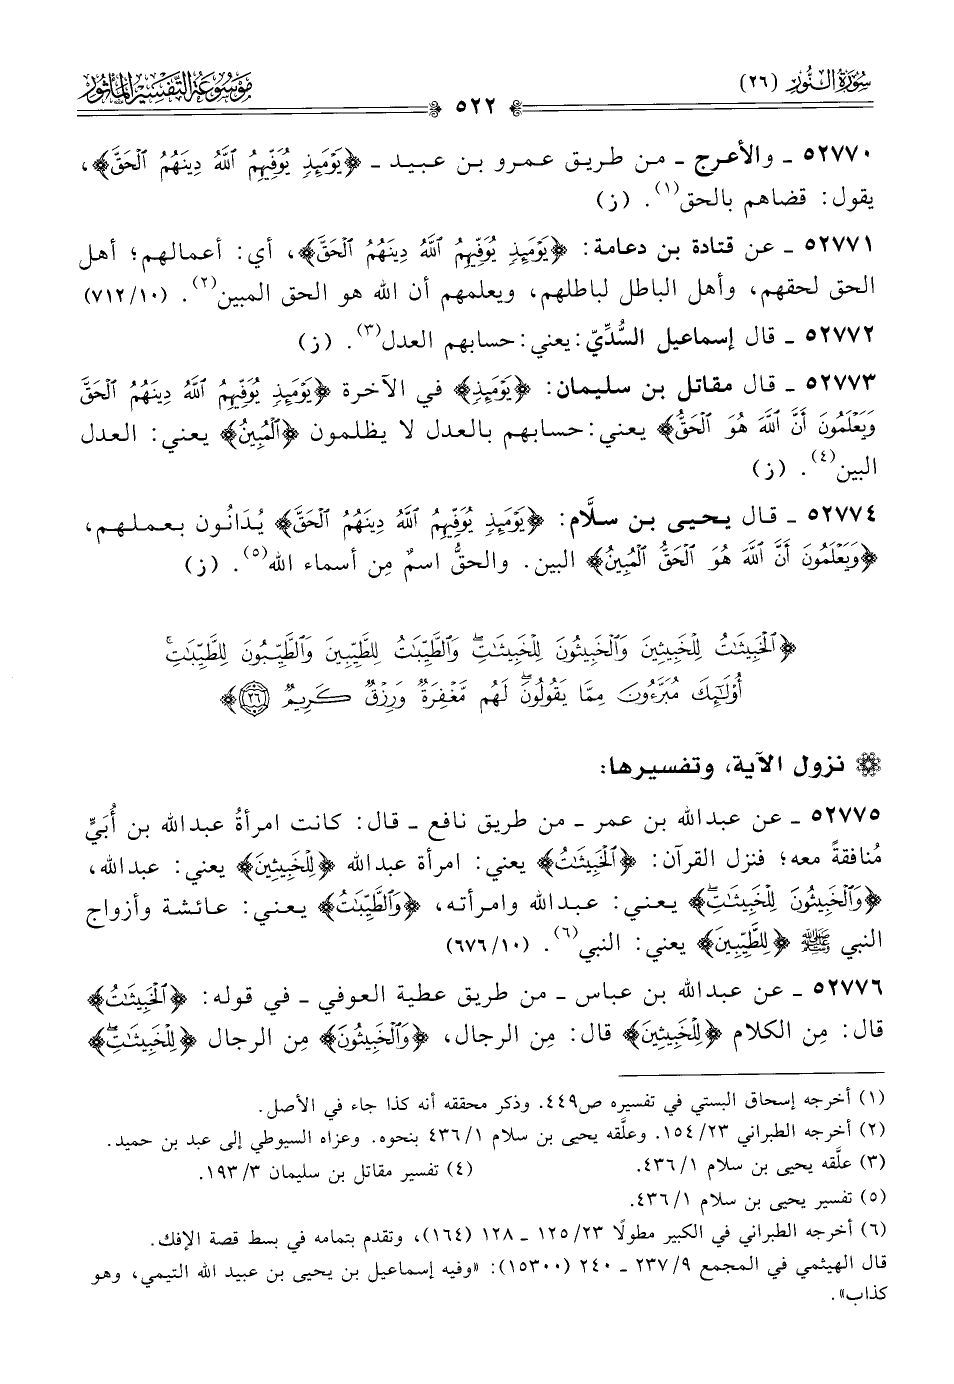 سُورَةُ النُّورِ (٢٦)
٥٢٢
مَوْسُوعَةُ التَّفْسِيرِ المَأْثُورِ
٥٢٧٧٠ ـ والأعرج ـ من طريق عمرو بن عبيد ـ ﴿يَوْمَئِذٍ يُوَفِّيهِمُ ٱللَّهُ دِينَهُمُ ٱلْحَقَّ﴾،
يقول: قضاهم بالحق(١). (ز)
٥٢٧٧١ ـ عن قتادة بن دعامة: ﴿يَوْمَئِذٍ يُوَفِّيهِمُ ٱللَّهُ دِينَهُمُ ٱلْحَقَّ﴾، أي: أعمالهم؛ أهل
الحق لحقهم، وأهل الباطل لباطلهم، ويعلمهم أن الله هو الحق المبين(٢). (٧١٢/١٠)
٥٢٧٧٢ ـ قال إسماعيل السُّدِّيّ: يعني: حسابهم العدل(٣). (ز)
٥٢٧٧٣ ـ قال مقاتل بن سليمان: ﴿يَوْمَئِذٍ﴾ في الآخرة ﴿يَوْمَئِذٍ يُوَفِّيهِمُ ٱللَّهُ دِينَهُمُ ٱلْحَقَّ
وَيَعْلَمُونَ أَنَّ ٱللَّهَ هُوَ ٱلْحَقُّ﴾ يعني: حسابهم بالعدل لا يظلمون ﴿ٱلْمُبِينُ﴾ يعني: العدل
البين(٤). (ز)
٥٢٧٧٤ ـ قال يحيى بن سلَّام: ﴿يَوْمَئِذٍ يُوَفِّيهِمُ ٱللَّهُ دِينَهُمُ ٱلْحَقَّ﴾ يُدَانُون بعملهم،
﴿وَيَعْلَمُونَ أَنَّ ٱللَّهَ هُوَ ٱلْحَقُّ ٱلْمُبِينُ﴾ البين. والحقُّ اسمٌ مِن أسماء الله(٥). (ز)
﴿ٱلْخَبِيثَـٰتُ لِلْخَبِيثِينَ وَٱلْخَبِيثُونَ لِلْخَبِيثَـٰتِۖ وَٱلطَّيِّبَـٰتُ لِلطَّيِّبِينَ وَٱلطَّيِّبُونَ لِلطَّيِّبَـٰتِۚ
أُوْلَـٰٓئِكَ مُبَرَّءُونَ مِمَّا يَقُولُونَۖ لَهُم مَّغْفِرَةٌ وَرِزْقٌ كَرِيمٌ ٢٦﴾
نزول الآية، وتفسيرها:
٥٢٧٧٥ ـ عن عبدالله بن عمر ـ من طريق نافع ـ قال: كانت امرأةُ عبدالله بن أُبَيٍّ
مُنافقةً معه؛ فنزل القرآن: ﴿ٱلْخَبِيثَـٰتُ﴾ يعني: امرأة عبدالله ﴿لِلْخَبِيثِينَ﴾ يعني: عبدالله،
﴿وَٱلْخَبِيثُونَ لِلْخَبِيثَـٰتِۖ﴾ يعني: عبدالله وامرأته، ﴿وَٱلطَّيِّبَـٰتُ﴾ يعني: عائشة وأزواج
النبي ﷺ ﴿لِلطَّيِّبِينَ﴾ يعني: النبي(٦). (٦٧٦/١٠)
٥٢٧٧٦ ـ عن عبدالله بن عباس ـ من طريق عطية العوفي ـ في قوله: ﴿ٱلْخَبِيثَـٰتُ﴾
قال: مِن الكلام ﴿لِلْخَبِيثِينَ﴾ قال: مِن الرجال، ﴿وَٱلْخَبِيثُونَ﴾ مِن الرجال ﴿لِلْخَبِيثَـٰتِۖ﴾
(١) أخرجه إسحاق البستي في تفسيره ص٤٤٩. وذكر محققه أنه كذا جاء في الأصل.
(٢) أخرجه الطبراني ٢٣/ ١٥٤. وعلَّقه يحيى بن سلام ١/ ٤٣٦ بنحوه. وعزاه السيوطي إلى عبد بن حميد.
(٣) علَّقه يحيى بن سلام ١/ ٤٣٦. (٤) تفسير مقاتل بن سليمان ٣/ ١٩٣.
(٥) تفسير يحيى بن سلام ١/ ٤٣٦.
(٦) أخرجه الطبراني في الكبير مطولًا ٢٣/ ١٢٥ ـ ١٢٨ (١٦٤)، وتقدم بتمامه في بسط قصة الإفك.
قال الهيثمي في المجمع ٩/ ٢٣٧ ـ ٢٤٠ (١٥٣٠٠): «وفيه إسماعيل بن يحيى بن عبيد الله التيمي، وهو
كذاب».